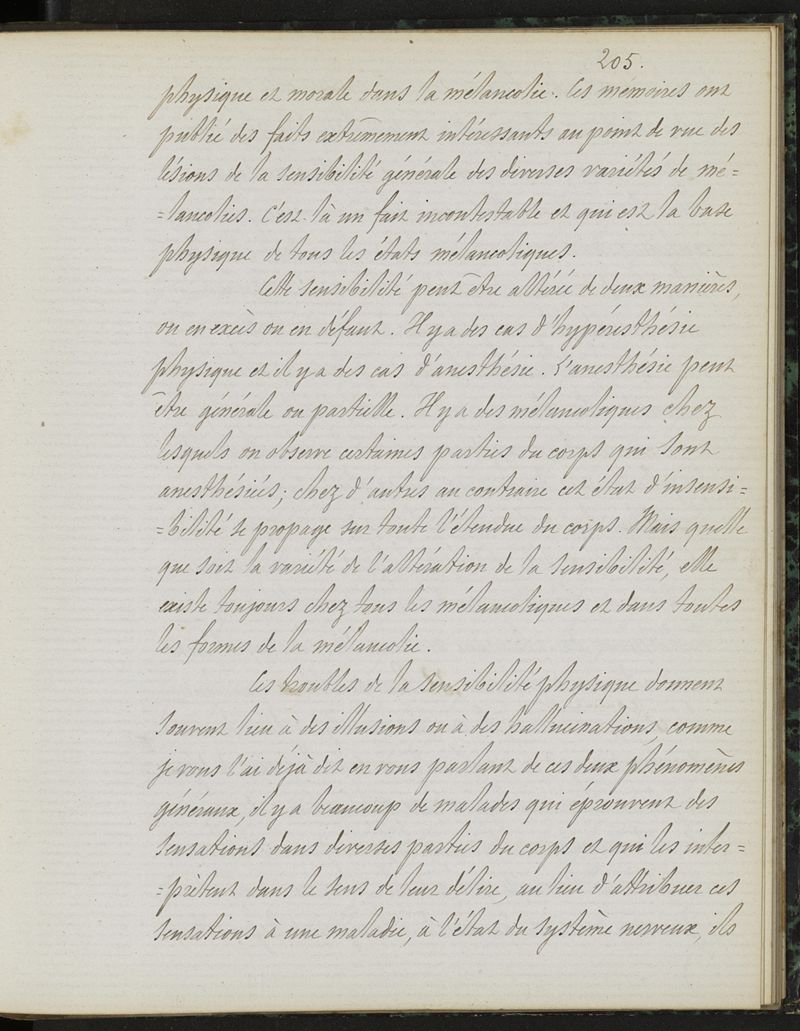 205.
physique et morale dans la mélancolie. Ces mémoires ont
publié des faits extrêmement intéressants au point de vue des
lésions de la sensibilité générale des diverses variétés de mé=
=lancolies. C'est là un fait incontestable et qui est la base
physique de tous les états mélancoliques.
Cette sensibilité peut être altérée de deux manières,
ou en excès ou en défaut. Il y a des cas d'hypéresthésie
physique et il y a des cas d'anesthésie. L'anesthésie peut
être générale ou partielle. Il y a des mélancoliques chez
lesquels on observe certaines parties du corps qui sont
anesthésiées; chez d'autres au contraire cet état d'insensi=
=bilité se propage sur toute l'étendue du corps. Mais quelle
que soit la variété de l'altération de la sensibilité, elle
existe toujours chez tous les mélancoliques et dans toutes
les formes de la mélancolie.
Ces troubles de la sensibilité physique donnent
souvent lieu à des illusions ou à des hallucinations comme
je vous l'ai déjà dit en vous parlant de ces deux phénomènes
généraux, il y a beaucoup de malades qui éprouvent des
sensations dans diverses parties du corps et qui les inter=
=prètent dans le sens de leur délire, au lieu d'attribuer ces
sensations à une maladie, à l'état du système nerveux, ils